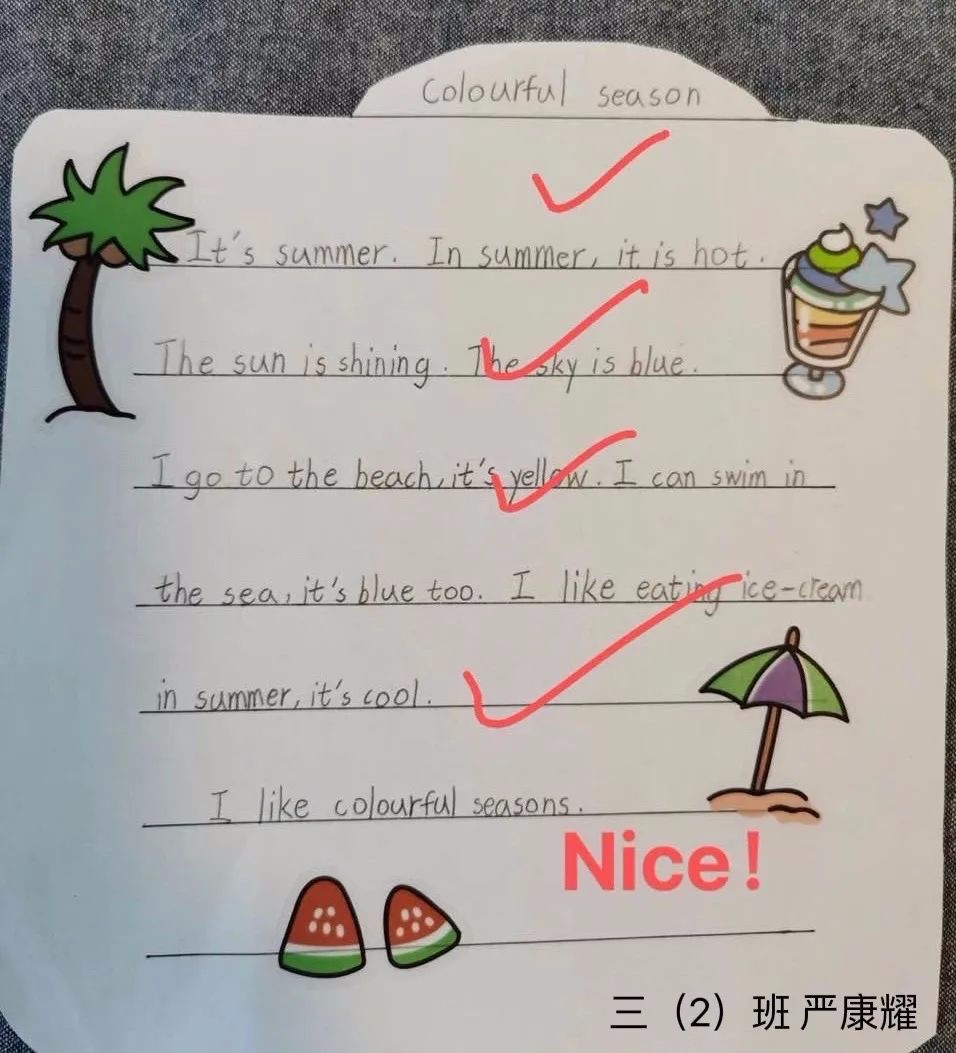 Colourful season
It's summer. In summer, it is hot.
The sun is shining. The sky is blue.
I go to the beach, it's yellow. I can swim in
the sea, it's blue too. I like eating ice-cream
in summer, it's cool.
I like colourful seasons.
Nice!
三（2）班 严康耀